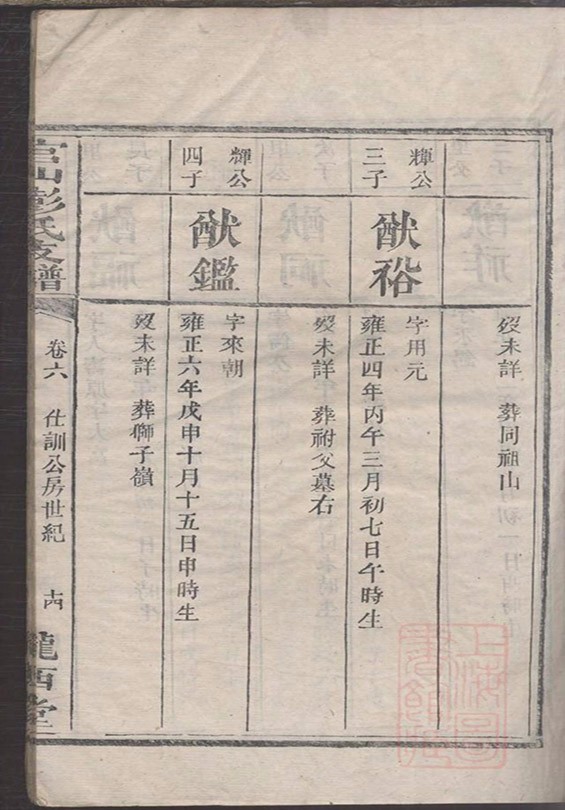 歿未詳 葬同祖山
輝公
三子
猷裕
字用元
雍正四年丙午三月初七日午時生
歿未詳 葬祔父墓右
輝公
四子
猷鑑
字來朝
雍正六年戊申十月十五日申時生
歿未詳 葬獅子嶺
官山彭氏支譜
卷六 仕訓公房世紀 十四
隴西堂
上海圖書館藏